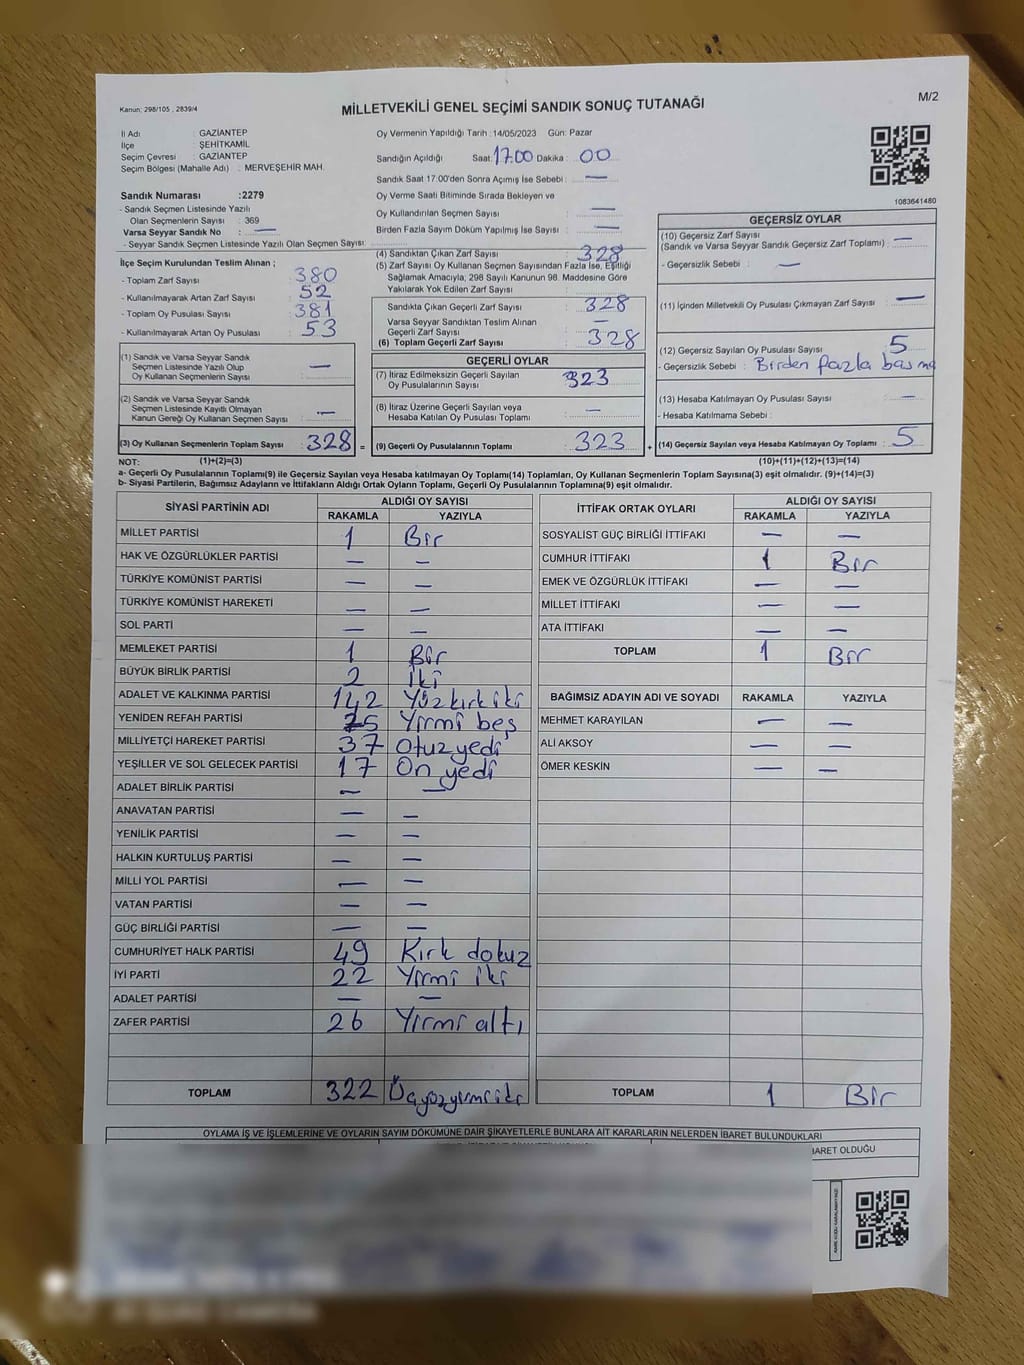 Kanun: 298/105 , 2839/4
MİLLETVEKİLİ GENEL SEÇİMİ SANDIK SONUÇ TUTANAĞI
M/2
İl Adı : GAZİANTEP
İlçe : ŞEHİTKAMİL
Seçim Çevresi : GAZİANTEP
Seçim Bölgesi (Mahalle Adı) : MERVEŞEHİR MAH.
Oy Vermenin Yapıldığı Tarih :14/05/2023 Gün: Pazar
Sandığın Açıldığı Saat: 17.00 Dakika : 00
Sandık Saat 17:00'den Sonra Açımış İse Sebebi : —
Oy Verme Saati Bitiminde Sırada Bekleyen ve
Oy Kullandırılan Seçmen Sayısı : —
Birden Fazla Sayım Döküm Yapılmış İse Sayısı : —
1083641480
Sandık Numarası :2279
- Sandık Seçmen Listesinde Yazılı
Olan Seçmenlerin Sayısı : 369
Varsa Seyyar Sandık No : —
- Seyyar Sandık Seçmen Listesinde Yazılı Olan Seçmen Sayısı:
İlçe Seçim Kurulundan Teslim Alınan ;
- Toplam Zarf Sayısı : 380
- Kullanılmayarak Artan Zarf Sayısı : 52
- Toplam Oy Pusulası Sayısı : 381
- Kullanılmayarak Artan Oy Pusulası : 53
(1) Sandık ve Varsa Seyyar Sandık
Seçmen Listesinde Yazılı Olup
Oy Kullanan Seçmenlerin Sayısı : —
(2) Sandık ve Varsa Seyyar Sandık
Seçmen Listesinde Kayıtlı Olmayan
Kanun Gereği Oy Kullanan Seçmen Sayısı : —
(3) Oy Kullanan Seçmenlerin Toplam Sayısı : 328 =
(4) Sandıktan Çıkan Zarf Sayısı : 328
(5) Zarf Sayısı Oy Kullanan Seçmen Sayısından Fazla İse, Eşitliği
Sağlamak Amacıyla; 298 Sayılı Kanunun 98. Maddesine Göre
Yakılarak Yok Edilen Zarf Sayısı :
Sandıkta Çıkan Geçerli Zarf Sayısı : 328
Varsa Seyyar Sandıktan Teslim Alınan
Geçerli Zarf Sayısı : —
(6) Toplam Geçerli Zarf Sayısı : 328
GEÇERLİ OYLAR
(7) İtiraz Edilmeksizin Geçerli Sayılan
Oy Pusulalarının Sayısı : 323
(8) İtiraz Üzerine Geçerli Sayılan veya
Hesaba Katılan Oy Pusulası Toplamı : —
(9) Geçerli Oy Pusulalarının Toplamı : 323 +
GEÇERSİZ OYLAR
(10) Geçersiz Zarf Sayısı
(Sandık ve Varsa Seyyar Sandık Geçersiz Zarf Toplamı) : —
- Geçersizlik Sebebi : —
(11) İçinden Milletvekili Oy Pusulası Çıkmayan Zarf Sayısı : —
(12) Geçersiz Sayılan Oy Pusulası Sayısı : 5
- Geçersizlik Sebebi : Birden fazla basma
(13) Hesaba Katılmayan Oy Pusulası Sayısı : —
- Hesaba Katılmama Sebebi :
(14) Geçersiz Sayılan veya Hesaba Katılmayan Oy Toplamı : 5
NOT: (1)+(2)=(3) (10)+(11)+(12)+(13)=(14)
a- Geçerli Oy Pusulalarının Toplamı(9) ile Geçersiz Sayılan veya Hesaba katılmayan Oy Toplamı(14) Toplamları, Oy Kullanan Seçmenlerin Toplam Sayısına(3) eşit olmalıdır. (9)+(14)=(3)
b- Siyasi Partilerin, Bağımsız Adayların ve İttifakların Aldığı Ortak Oyların Toplamı, Geçerli Oy Pusulalarının Toplamına(9) eşit olmalıdır.
SİYASİ PARTİNİN ADI ALDIĞI OY SAYISI
RAKAMLA YAZIYLA
MİLLET PARTİSİ 1 Bir
HAK VE ÖZGÜRLÜKLER PARTİSİ — —
TÜRKİYE KOMÜNİST PARTİSİ — —
TÜRKİYE KOMÜNİST HAREKETİ — —
SOL PARTİ — —
MEMLEKET PARTİSİ 1 Bir
BÜYÜK BİRLİK PARTİSİ 2 İki
ADALET VE KALKINMA PARTİSİ 142 Yüzkırkiki
YENİDEN REFAH PARTİSİ 25 Yirmi beş
MİLLİYETÇİ HAREKET PARTİSİ 37 Otuz yedi
YEŞİLLER VE SOL GELECEK PARTİSİ 17 On yedi
ADALET BİRLİK PARTİSİ — —
ANAVATAN PARTİSİ — —
YENİLİK PARTİSİ — —
HALKIN KURTULUŞ PARTİSİ — —
MİLLİ YOL PARTİSİ — —
VATAN PARTİSİ — —
GÜÇ BİRLİĞİ PARTİSİ — —
CUMHURİYET HALK PARTİSİ 49 Kırk dokuz
İYİ PARTİ 22 Yirmi iki
ADALET PARTİSİ — —
ZAFER PARTİSİ 26 Yirmi altı
TOPLAM 322 Üçyüzyirmiiki
İTTİFAK ORTAK OYLARI ALDIĞI OY SAYISI
RAKAMLA YAZIYLA
SOSYALİST GÜÇ BİRLİĞİ İTTİFAKI — —
CUMHUR İTTİFAKI 1 Bir
EMEK VE ÖZGÜRLÜK İTTİFAKI — —
MİLLET İTTİFAKI — —
ATA İTTİFAKI — —
TOPLAM 1 Bir
BAĞIMSIZ ADAYIN ADI VE SOYADI RAKAMLA YAZIYLA
MEHMET KARAYILAN — —
ALİ AKSOY — —
ÖMER KESKİN — —
TOPLAM 1 Bir
OYLAMA İŞ VE İŞLEMLERİNE VE OYLARIN SAYIM DÖKÜMÜNE DAİR ŞİKAYETLERLE BUNLARA AİT KARARLARIN NELERDEN İBARET BULUNDUKLARI
İBARET OLDUĞU